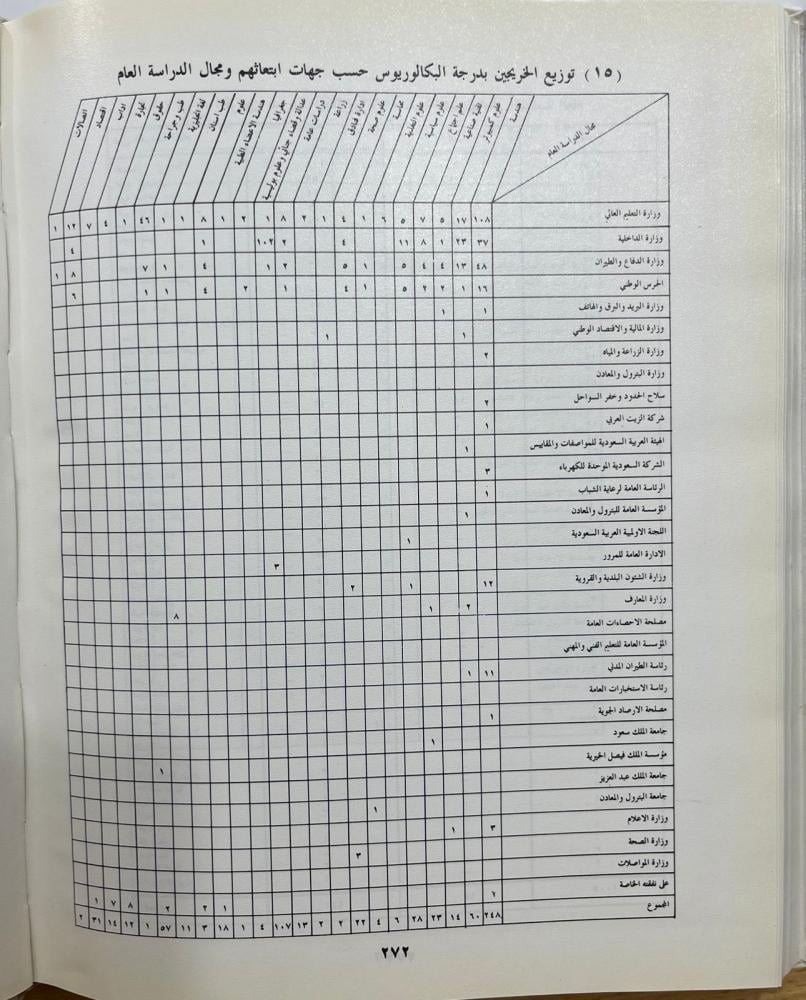 (١٥) توزيع الخريجين بدرجة البكالوريوس حسب جهات ابتعاثهم ومجال الدراسة العام
مجال الدراسة العام
هندسة
علوم كمبيوتر
تقنية صناعية
علم اجتماع
علوم سياسية
علوم
محاسبة
علوم صحة
ادارة فنادق
زراعة
دراسات عامة
عدالة وقضاء جنائي وعلوم بوليسية
جغرافيا
هندسة الاعضاء الطبية
علوم
طب اسنان
لغة انجليزية
طب وجراحة
حقوق
تجارة
اداب
اقتصاد
اتصالات
وزارة التعليم العالي ١٠٨ ١٧ ٥ ٧ ٥ ٦ ١ ٤ ١ ٢ ٨ ١ ٢ ١ ٨ ١ ١ ٤٦ ١ ٤ ٧ ١٢ ١
وزارة الداخلية ٣٧ ٢٣ ١ ٨ ١١ ٤ ٢ ١٠٢ ١ ٤
وزارة الدفاع والطيران ٤٨ ١٣ ٤ ٤ ٥ ١ ٥ ٢ ١ ٤ ١ ٧ ٨ ١
الحرس الوطني ١٦ ١ ٢ ٢ ٥ ١ ٤ ١ ٢ ٤ ١ ١ ٦
وزارة البريد والبرق والهاتف ١ ١
وزارة المالية والاقتصاد الوطني ١ ١
وزارة الزراعة والمياه ٢
وزارة البترول والمعادن
سلاح الحدود وخفر السواحل ٢
شركة الزيت العربي ١
الهيئة العربية السعودية للمواصفات والمقاييس ١
الشركة السعودية الموحدة للكهرباء ٣
الرئاسة العامة لرعاية الشباب ١
المؤسسة العامة للبترول والمعادن ١
اللجنة الاولمبية العربية السعودية ١
الادارة العامة للمرور ٣
وزارة الشئون البلدية والقروية ١٢ ١ ٢
وزارة المعارف ٢ ١
مصلحة الاحصاءات العامة ٨
المؤسسة العامة للتعليم الفني والمهني
رئاسة الطيران المدني ١١ ١
رئاسة الاستخبارات العامة
مصلحة الارصاد الجوية ١
جامعة الملك سعود ١
مؤسسة الملك فيصل الخيرية
جامعة الملك عبد العزيز ١
جامعة البترول والمعادن ١
وزارة الاعلام ٣ ١
وزارة الصحة ٣
وزارة المواصلات
على نفقته الخاصة ٢ ١ ٢ ٢ ٨ ٧ ١
المجموع ٢٤٨ ٦٠ ١٤ ٢٣ ٢٨ ٦ ٤ ٢٢ ٢ ٢ ١٣ ١٠٧ ٤ ١ ١٨ ٣ ١١ ٥٧ ١ ١٢ ١٤ ٣١ ٢
٢٧٢